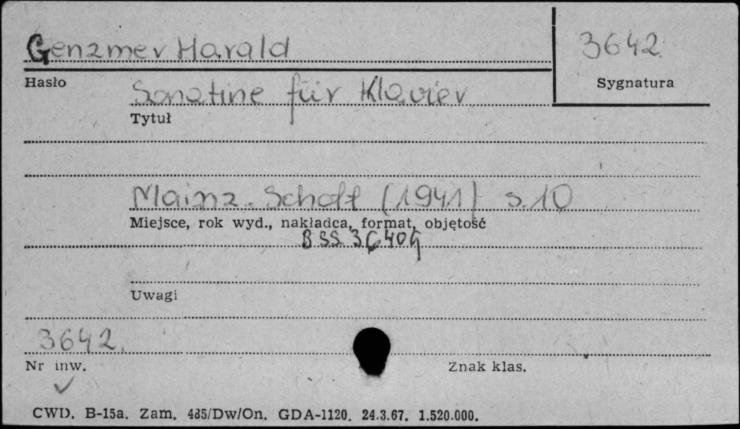 Genzmer Harald
3642
Hasło
Sygnatura
Sonatine für Klavier
Tytuł
Mainz. Schott (1941) s. 10
Miejsce, rok wyd., nakładca, format, objętość
BSS 36409
Uwagi
3642
Nr inw.
Znak klas.
CWD. B-15a. Zam. 485/Dw/On. GDA-1120. 24.3.67. 1.520.000.